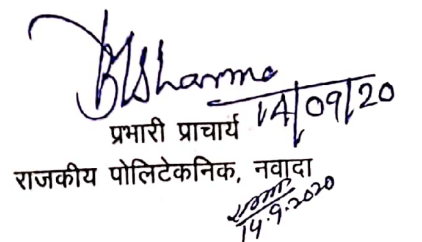 BKSharma
14/09/20
प्रभारी प्राचार्य
राजकीय पोलिटेकनिक, नवादा
14.9.2020